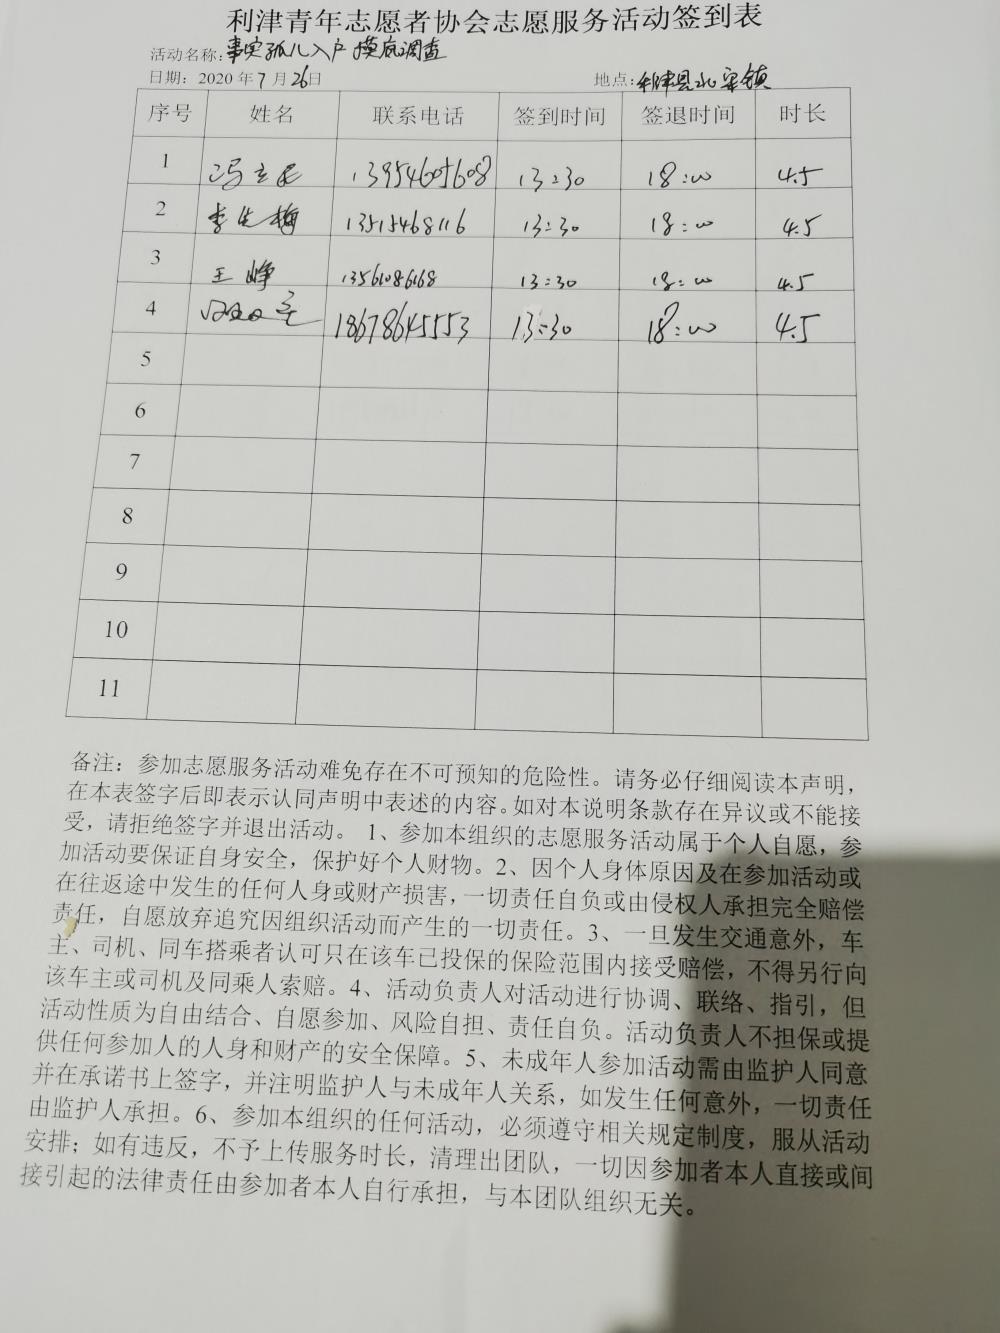 利津青年志愿者协会志愿服务活动签到表
活动名称:事实孤儿入户摸底调查
日期：2020年7月26日 地点:利津县北宋镇
序号 姓名 联系电话 签到时间 签退时间 时长
1 冯立民 13954605608 13:30 18:00 4.5
2 李先梅 13515468116 13:30 18:00 4.5
3 王峥 13561086168 13:30 18:00 4.5
4 18678645553 13:30 18:00 4.5
5
6
7
8
9
10
11
备注：参加志愿服务活动难免存在不可预知的危险性。请务必仔细阅读本声明，
在本表签字后即表示认同声明中表述的内容。如对本说明条款存在异议或不能接
受，请拒绝签字并退出活动。 1、参加本组织的志愿服务活动属于个人自愿，参
加活动要保证自身安全，保护好个人财物。2、因个人身体原因及在参加活动或
在往返途中发生的任何人身或财产损害，一切责任自负或由侵权人承担完全赔偿
责任，自愿放弃追究因组织活动而产生的一切责任。3、一旦发生交通意外，车
主、司机、同车搭乘者认可只在该车已投保的保险范围内接受赔偿，不得另行向
该车主或司机及同乘人索赔。4、活动负责人对活动进行协调、联络、指引，但
活动性质为自由结合、自愿参加、风险自担、责任自负。活动负责人不担保或提
供任何参加人的人身和财产的安全保障。5、未成年人参加活动需由监护人同意
并在承诺书上签字，并注明监护人与未成年人关系，如发生任何意外，一切责任
由监护人承担。6、参加本组织的任何活动，必须遵守相关规定制度，服从活动
安排；如有违反，不予上传服务时长，清理出团队，一切因参加者本人直接或间
接引起的法律责任由参加者本人自行承担，与本团队组织无关。